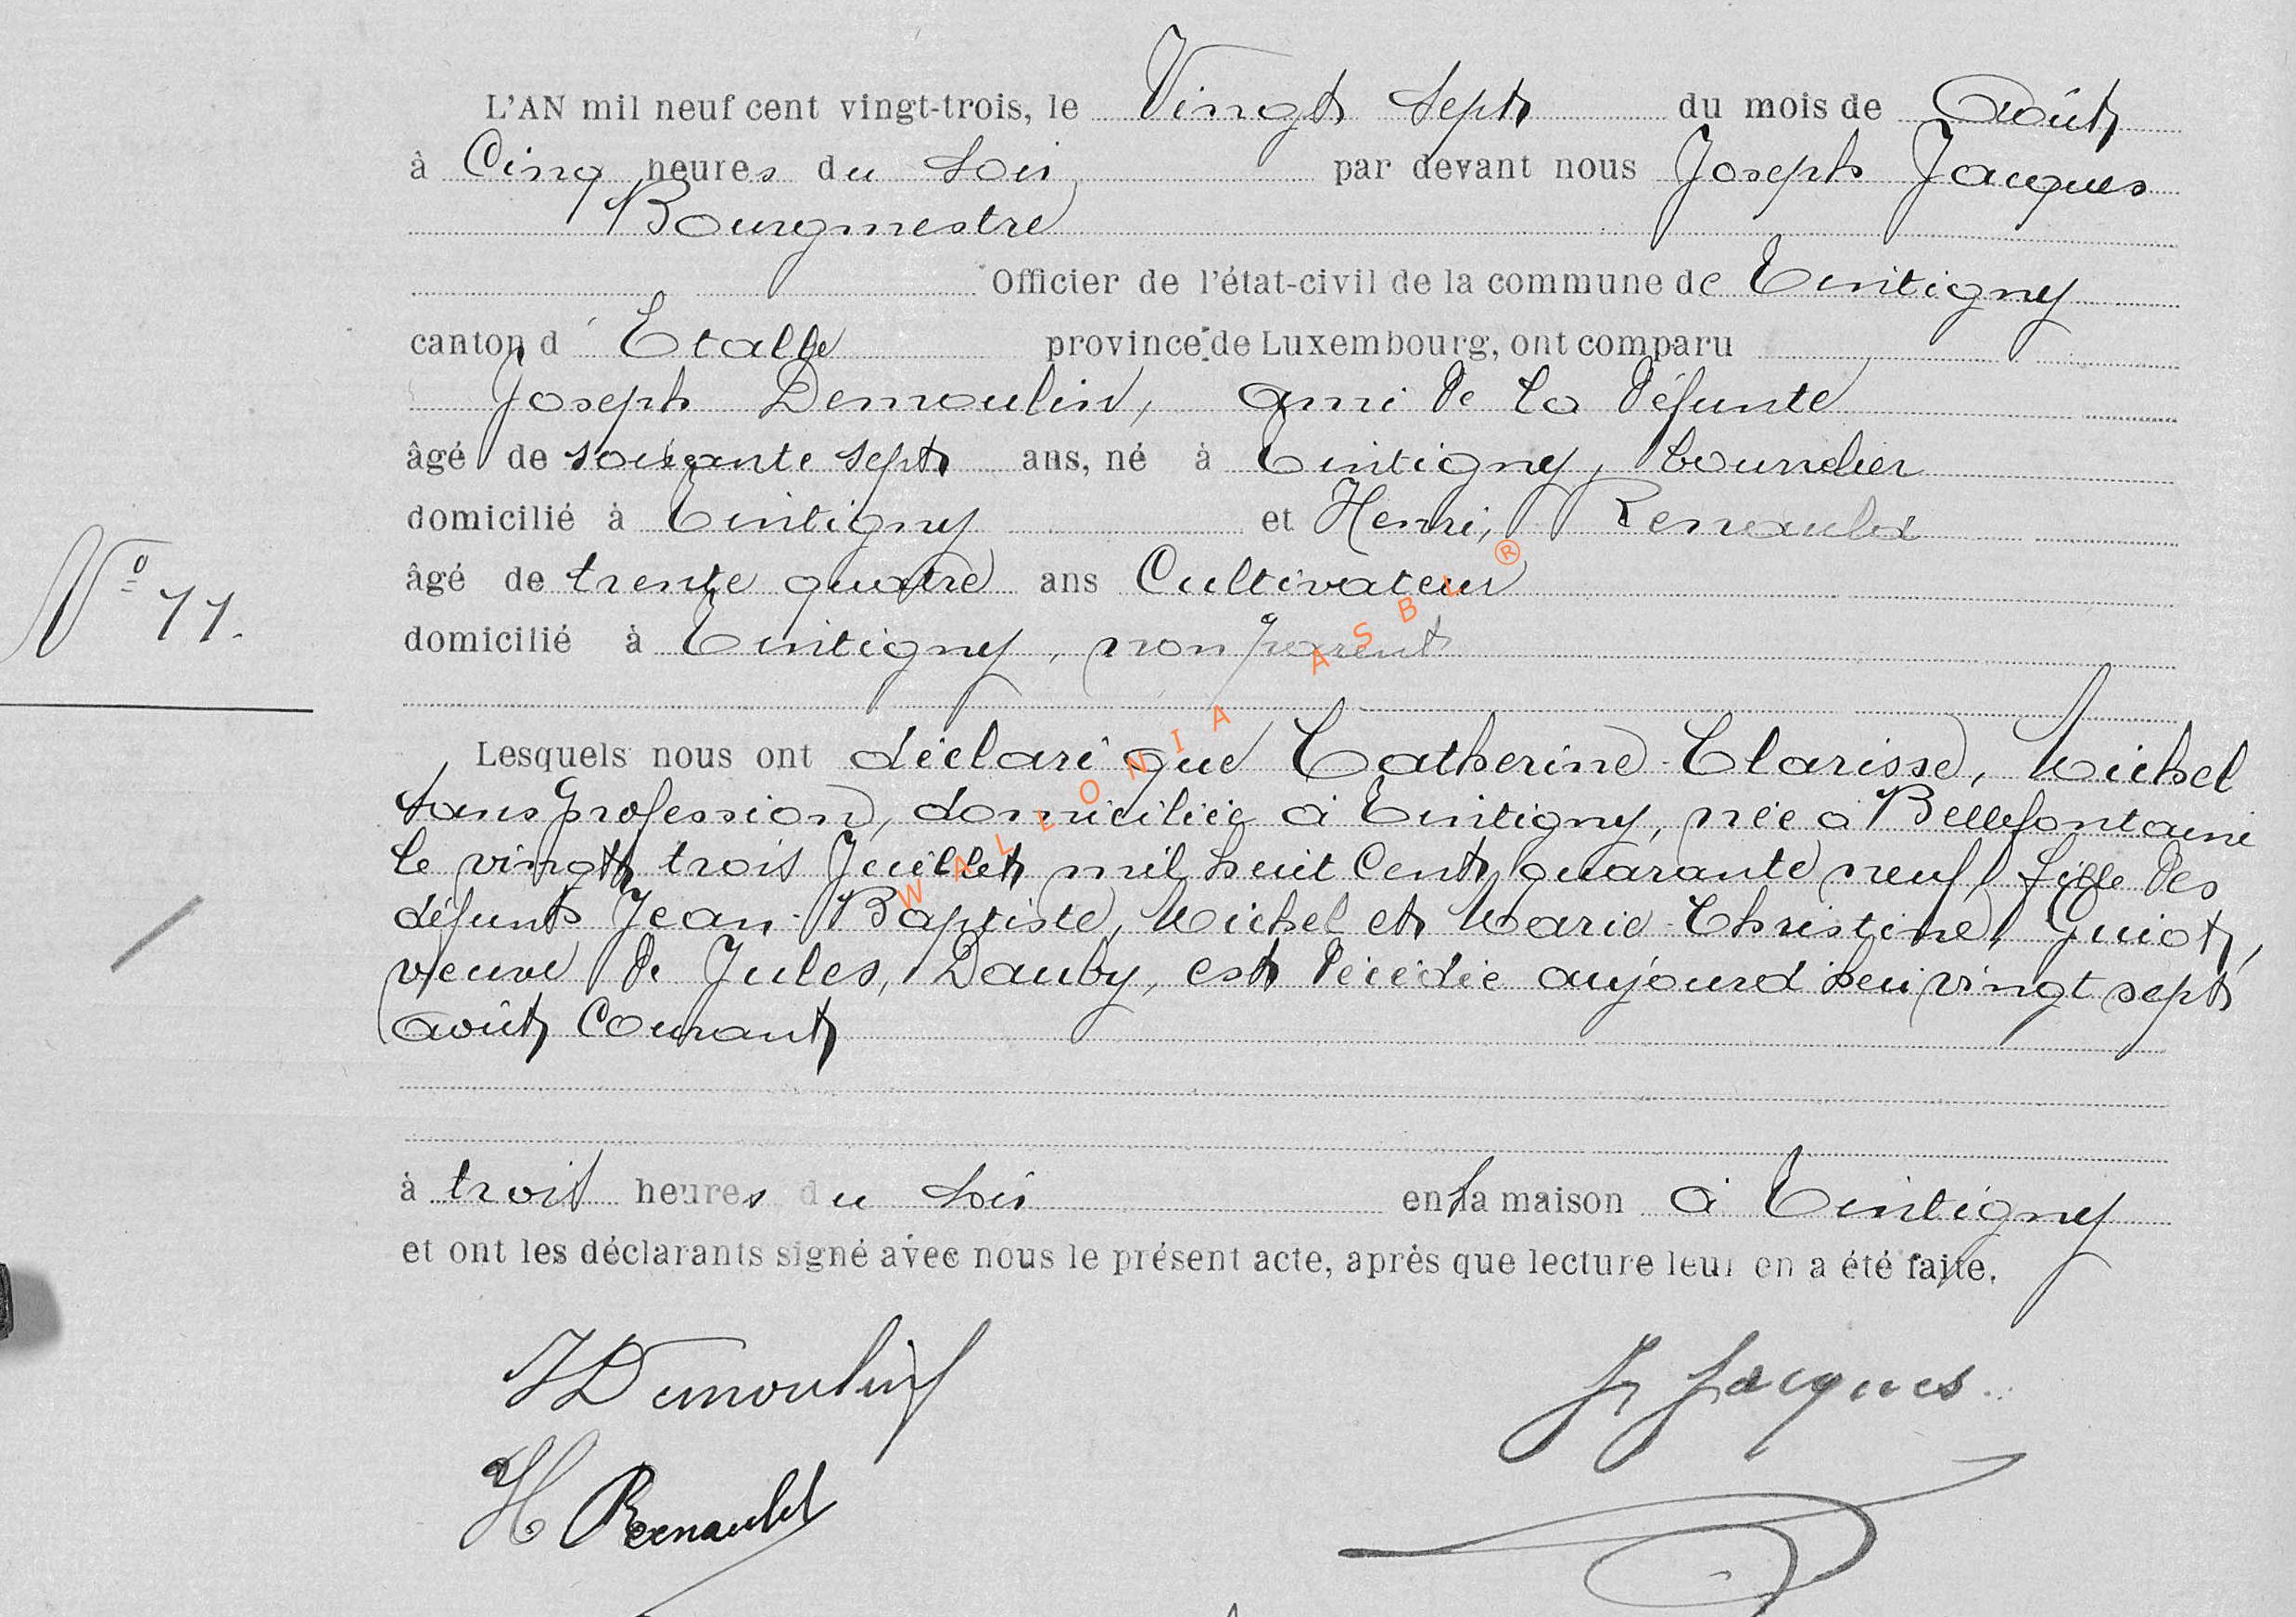 L'AN mil neuf cent vingt-trois, le Vingt Sept du mois de Août
à Cinq heures du Soir par devant nous Joseph Jacques
Bourgmestre
Officier de l'état-civil de la commune de Tintigny
canton d'Etalle province de Luxembourg, ont comparu
Joseph Demoulin, ami de la défunte
âgé de soixante sept ans, né à Tintigny, bourrelier
domicilié à Tintigny et Henri, Renauld
âgé de trente quatre ans Cultivateur
N° 11.
domicilié à Tintigny, non parent
Lesquels nous ont déclaré que Catherine-Clarisse, Michel
sans profession, domiciliée à Tintigny, née à Bellefontaine
le vingt trois Juillet mil huit Cent quarante neuf, fille des
défunts Jean-Baptiste, Michel et Marie-Christine, Guiot,
veuve de Jules, Dauby, est décédée aujourd'hui vingt sept
août Courant
à trois heures du Soir en la maison à Tintigny
et ont les déclarants signé avec nous le présent acte, après que lecture leur en a été faite.
JDemoulin
J Jacques
H Renauld
WALLONIA ASBL ®